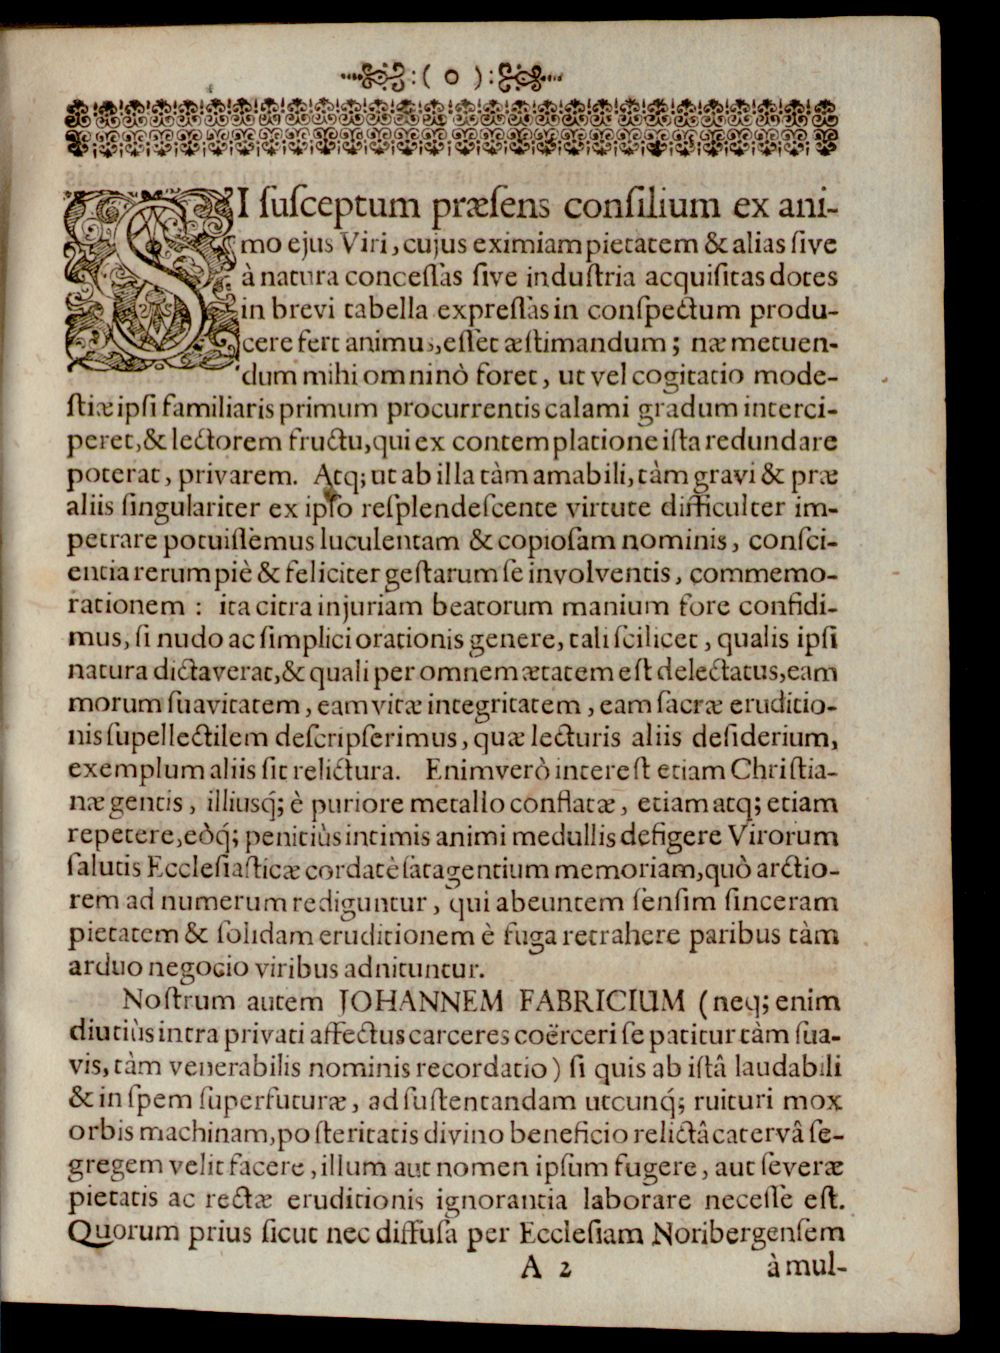 :( o ):
SI ſuſceptum præſens conſilium ex ani-
mo ejus Viri, cujus eximiam pietatem & alias ſive
à natura conceſſas ſive induſtria acquiſitas dotes
in brevi tabella expreſſas in conſpectum produ-
cere fert animus, eſſet æſtimandum; næ metuen-
dum mihi omninò foret, ut vel cogitatio mode-
ſtiæ ipſi familiaris primum procurrentis calami gradum interci-
peret, & lectorem fructu, qui ex contemplatione iſta redundare
poterat, privarem. Atq; ut ab illa tàm amabili, tàm gravi & præ
aliis ſingulariter ex ipſo reſplendeſcente virtute difficulter im-
petrare potuiſſemus luculentam & copioſam nominis, conſci-
entia rerum piè & feliciter geſtarum ſe involventis, commemo-
rationem : ita citra injuriam beatorum manium fore confidi-
mus, ſi nudo ac ſimplici orationis genere, tali ſcilicet, qualis ipſi
natura dictaverat, & quali per omnem ætatem eſt delectatus, eam
morum ſuavitatem, eam vitæ integritatem, eam ſacræ eruditio-
nis ſupellectilem deſcripſerimus, quæ lecturis aliis deſiderium,
exemplum aliis ſit relictura. Enimverò intereſt etiam Chriſtia-
næ gentis, illiusq́; è puriore metallo conflatæ, etiam atq; etiam
repetere, eòq́; penitiùs intimis animi medullis defigere Virorum
ſalutis Eccleſiaſticæ cordatè ſatagentium memoriam, quò arctio-
rem ad numerum rediguntur, qui abeuntem ſenſim ſinceram
pietatem & ſolidam eruditionem è fuga retrahere paribus tàm
arduo negocio viribus adnituntur.
Noſtrum autem JOHANNEM FABRICIUM (neq; enim
diutiùs intra privati affectus carceres coërceri ſe patitur tàm ſua-
vis, tàm venerabilis nominis recordatio) ſi quis ab iſtâ laudabili
& in ſpem ſuperfuturæ, ad ſuſtentandam utcunq́; ruituri mox
orbis machinam, poſteritatis divino beneficio relictâ catervâ ſe-
gregem velit facere, illum aut nomen ipſum fugere, aut ſeveræ
pietatis ac rectæ eruditionis ignorantia laborare neceſſe eſt.
Quorum prius ſicut nec diffuſa per Eccleſiam Noribergenſem
A 2 à mul-